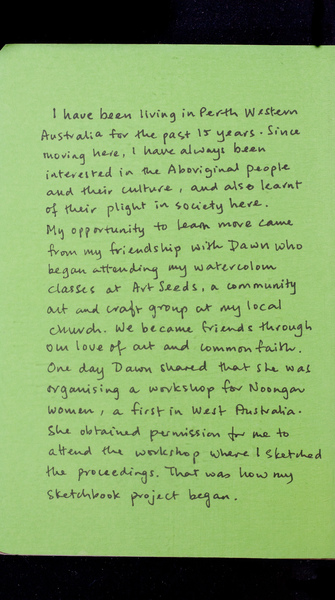 I have been living in Perth Western
Australia for the past 15 years. Since
moving here, I have always been
interested in the Aboriginal people
and their culture, and also learnt
of their plight in society here.
My opportunity to learn more came
from my friendship with Dawn who
began attending my watercolour
classes at Art Seeds, a community
art and craft group at my local
church. We became friends through
our love of art and common faith.
One day Dawn shared that she was
organising a workshop for Noongar
women, a first in West Australia.
She obtained permission for me to
attend the workshop where I sketched
the proceedings. That was how my
sketchbook project began.